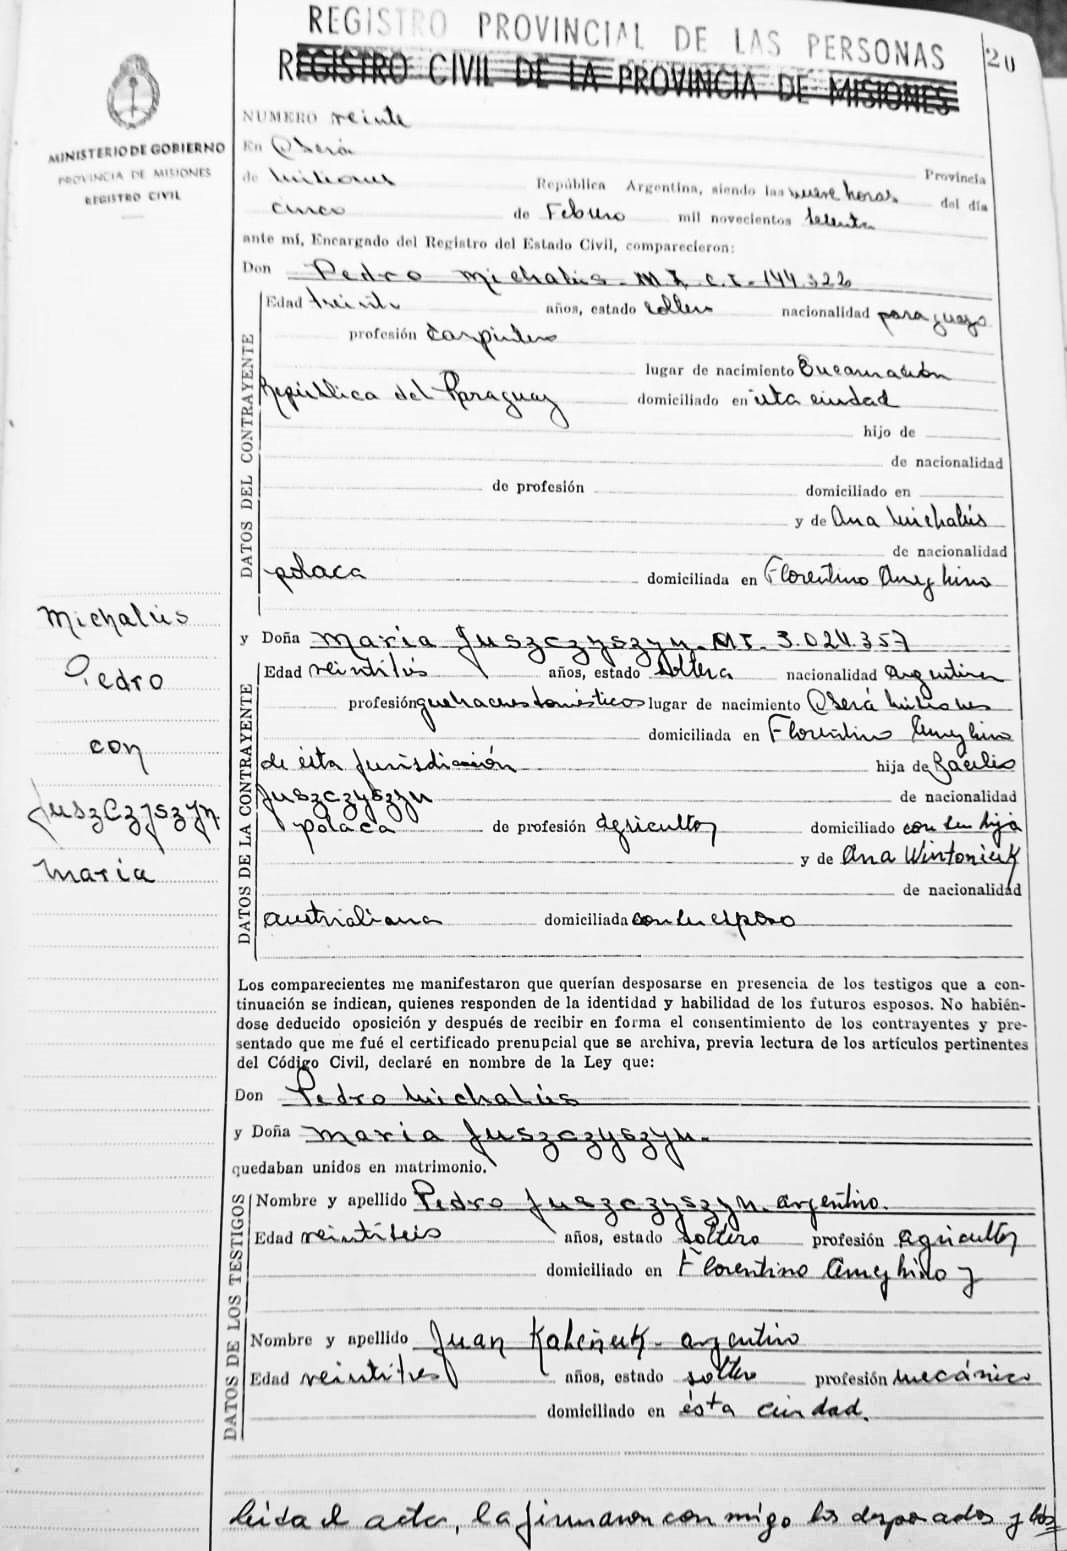 REGISTRO PROVINCIAL DE LAS PERSONAS
20
REGISTRO CIVIL DE LA PROVINCIA DE MISIONES
MINISTERIO DE GOBIERNO
PROVINCIA DE MISIONES
REGISTRO CIVIL
NUMERO veinte
En Oberá Provincia
de Misiones República Argentina, siendo las nueve horas del día
cinco de Febrero mil novecientos setenta
ante mí, Encargado del Registro del Estado Civil, comparecieron:
Don Pedro Michalús - M.I. C.I. - 144.322
DATOS DEL CONTRAYENTE
Edad treinta años, estado soltero nacionalidad paraguayo
profesión Carpintero
lugar de nacimiento Encarnación
República del Paraguay domiciliado en ésta ciudad
hijo de
de nacionalidad
de profesión domiciliado en
y de Ana Michalús
de nacionalidad
polaca domiciliada en Florentino Ameghino
Michalús
Pedro
con
Juszczyszyn
María
y Doña María Juszczyszyn - M.I. 3.024.357
DATOS DE LA CONTRAYENTE
Edad años, estado soltera nacionalidad argentina
profesión quehaceres domésticos lugar de nacimiento Oberá Misiones
domiciliada en Florentino Ameghino
de ésta Jurisdicción hija de Bacilio
Juszczyszyn de nacionalidad
polaca de profesión agricultor domiciliado con su hija
y de Ana Wintoniuk
de nacionalidad
austrialiana domiciliada con su esposo
Los comparecientes me manifestaron que querían desposarse en presencia de los testigos que a con-
tinuación se indican, quienes responden de la identidad y habilidad de los futuros esposos. No habién-
dose deducido oposición y después de recibir en forma el consentimiento de los contrayentes y pre-
sentado que me fué el certificado prenupcial que se archiva, previa lectura de los artículos pertinentes
del Código Civil, declaré en nombre de la Ley que:
Don Pedro Michalús
y Doña María Juszczyszyn -
quedaban unidos en matrimonio.
DATOS DE LOS TESTIGOS
Nombre y apellido Pedro Juszczyszyn - argentino.
Edad veintiseis años, estado soltero profesión agricultor
domiciliado en Florentino Ameghino y
Nombre y apellido Juan - argentino
Edad veintitres años, estado soltero profesión mecánico
domiciliado en ésta ciudad.
leida el acta, la firmaron conmigo los desposados y los=